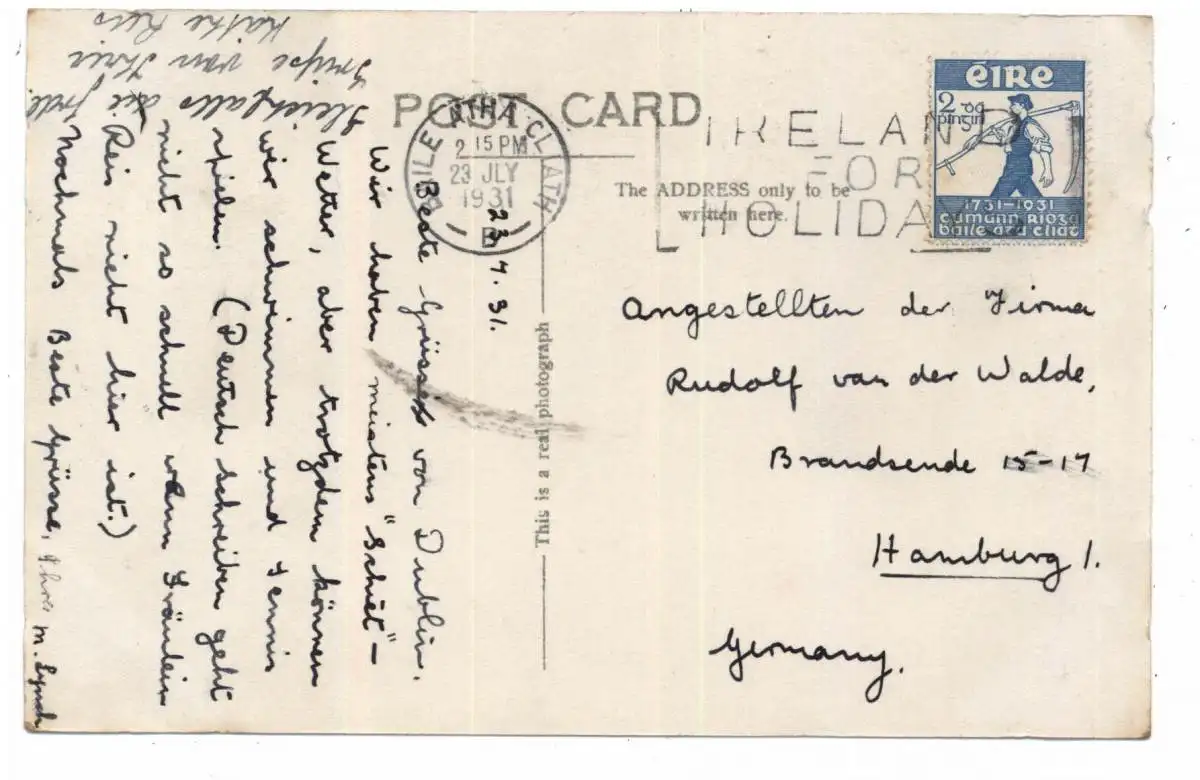 POST CARD
The ADDRESS only to be
written here.
This is a real photograph
BAILE ATHA CLIATH
2 15 PM
23 JLY
1931
B
IRELAND
FOR
HOLIDAYS
éIRE
2 pingin
1731-1931
cumann ríoga
baile áta cliat
23.7.31.
Beste Grüsse von Dublin.
Wir haben meistens "Schiet"-
Wetter, aber trotzdem können
wir schwimmen und Tennis
spielen. (Deutsch schreiben geht
nicht so schnell wenn Fräulein
Reis nicht hier ist.)
Nochmals Beste Grüsse, Ihres M. Lynch
Gleichfalls die
Grüße von Ihrer
Käthe Reis
Angestellten der Firma
Rudolf van der Walde,
Brandsende 15-17
Hamburg 1.
Germany.